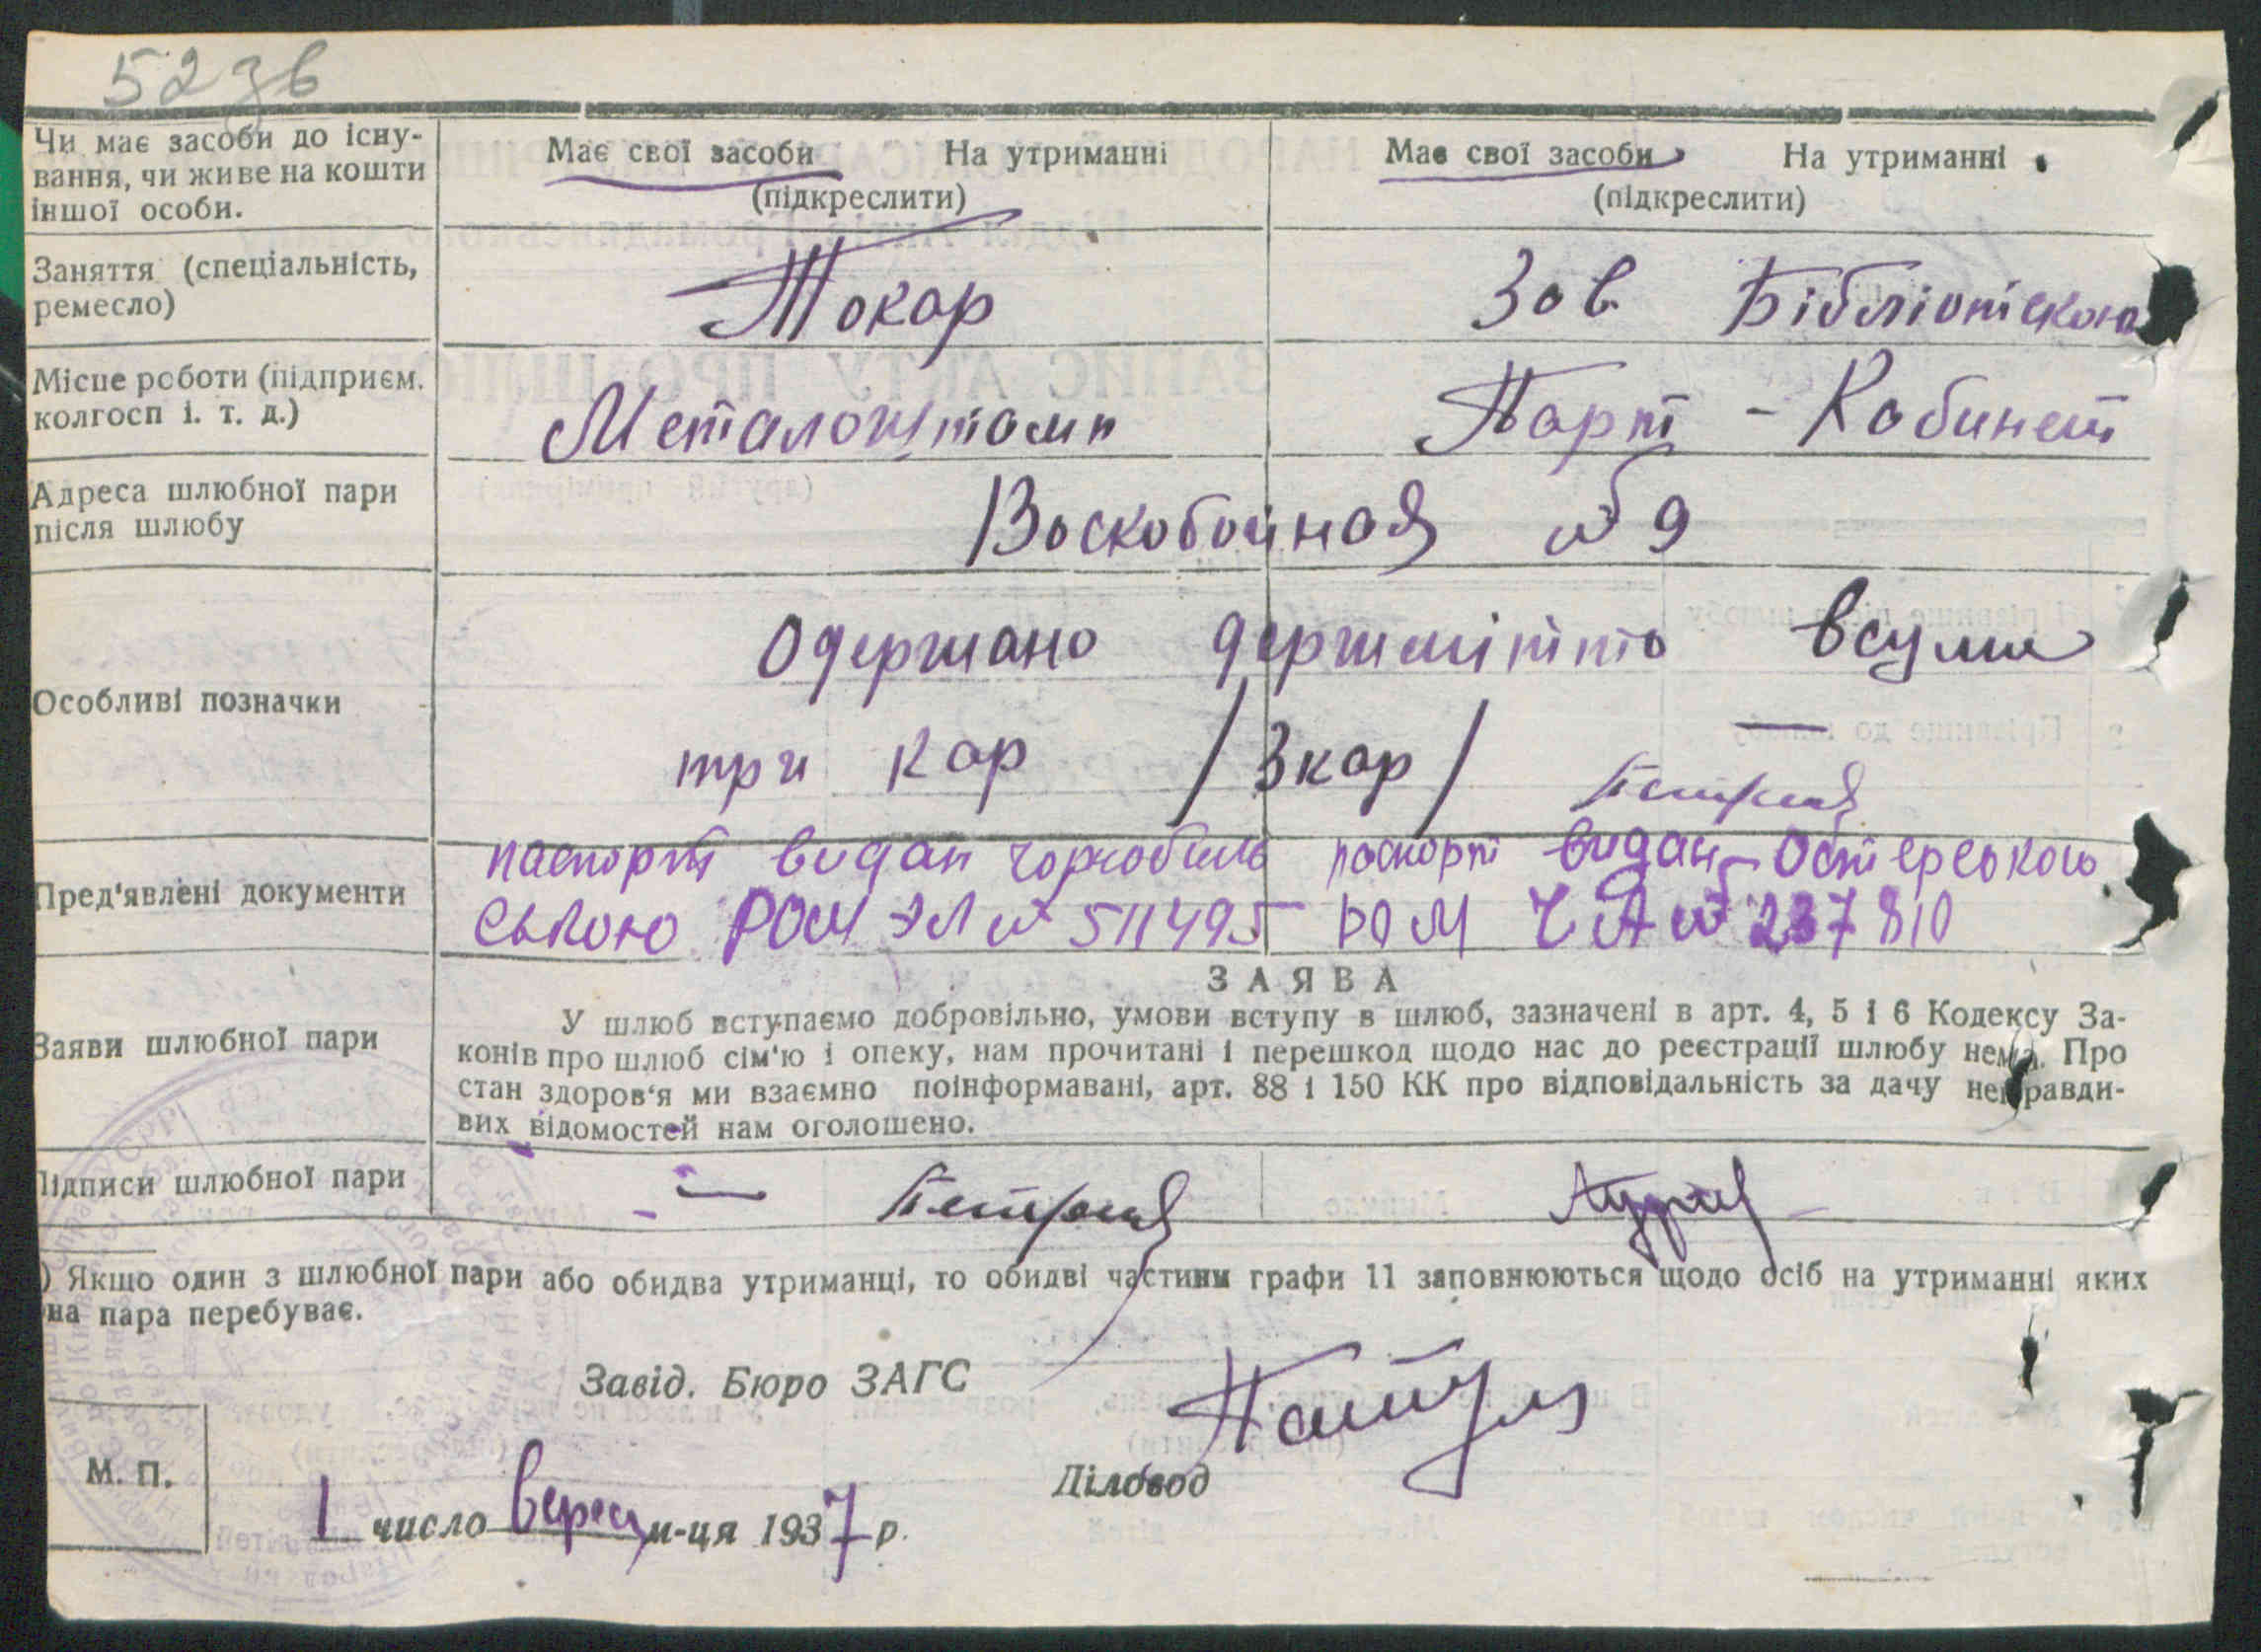 52 зв
Чи має засоби до існу-
вання, чи живе на кошти
іншої особи.
Має свої засоби На утриманні
(підкреслити)
Має свої засоби На утриманні
(підкреслити)
Заняття (спеціальність,
ремесло)
Токар
Зав Бібліотекою
Місце роботи (підприєм.
колгосп і. т. д.)
Металоштамп
Парт - Кабинет
Адреса шлюбної пари
після шлюбу
Воскобойная № 9
Особливі позначки
Одержано держмітто всуми
три кар / 3 кар /
Пред'явлені документи
паспорт видан Чорнобиль
ською РОМ ЭЛ № 511495
паспорт видан Остерською
РОМ ЧА № 237810
Заяви шлюбної пари
ЗАЯВА
У шлюб вступаємо добровільно, умови вступу в шлюб, зазначені в арт. 4, 5 і 6 Кодексу За-
конів про шлюб сім'ю і опеку, нам прочитані і перешкод щодо нас до реєстрації шлюбу нема. Про
стан здоров'я ми взаємно поінформавані, арт. 88 і 150 КК про відповідальність за дачу неправди-
вих відомостей нам оголошено.
Підписи шлюбної пари
) Якщо один з шлюбної пари або обидва утриманці, то обидві частини графи 11 заповнюються щодо осіб на утриманні яких
на пара перебуває.
Завід. Бюро ЗАГС
Діловод
М. П.
1 число верес м-ця 1937 р.